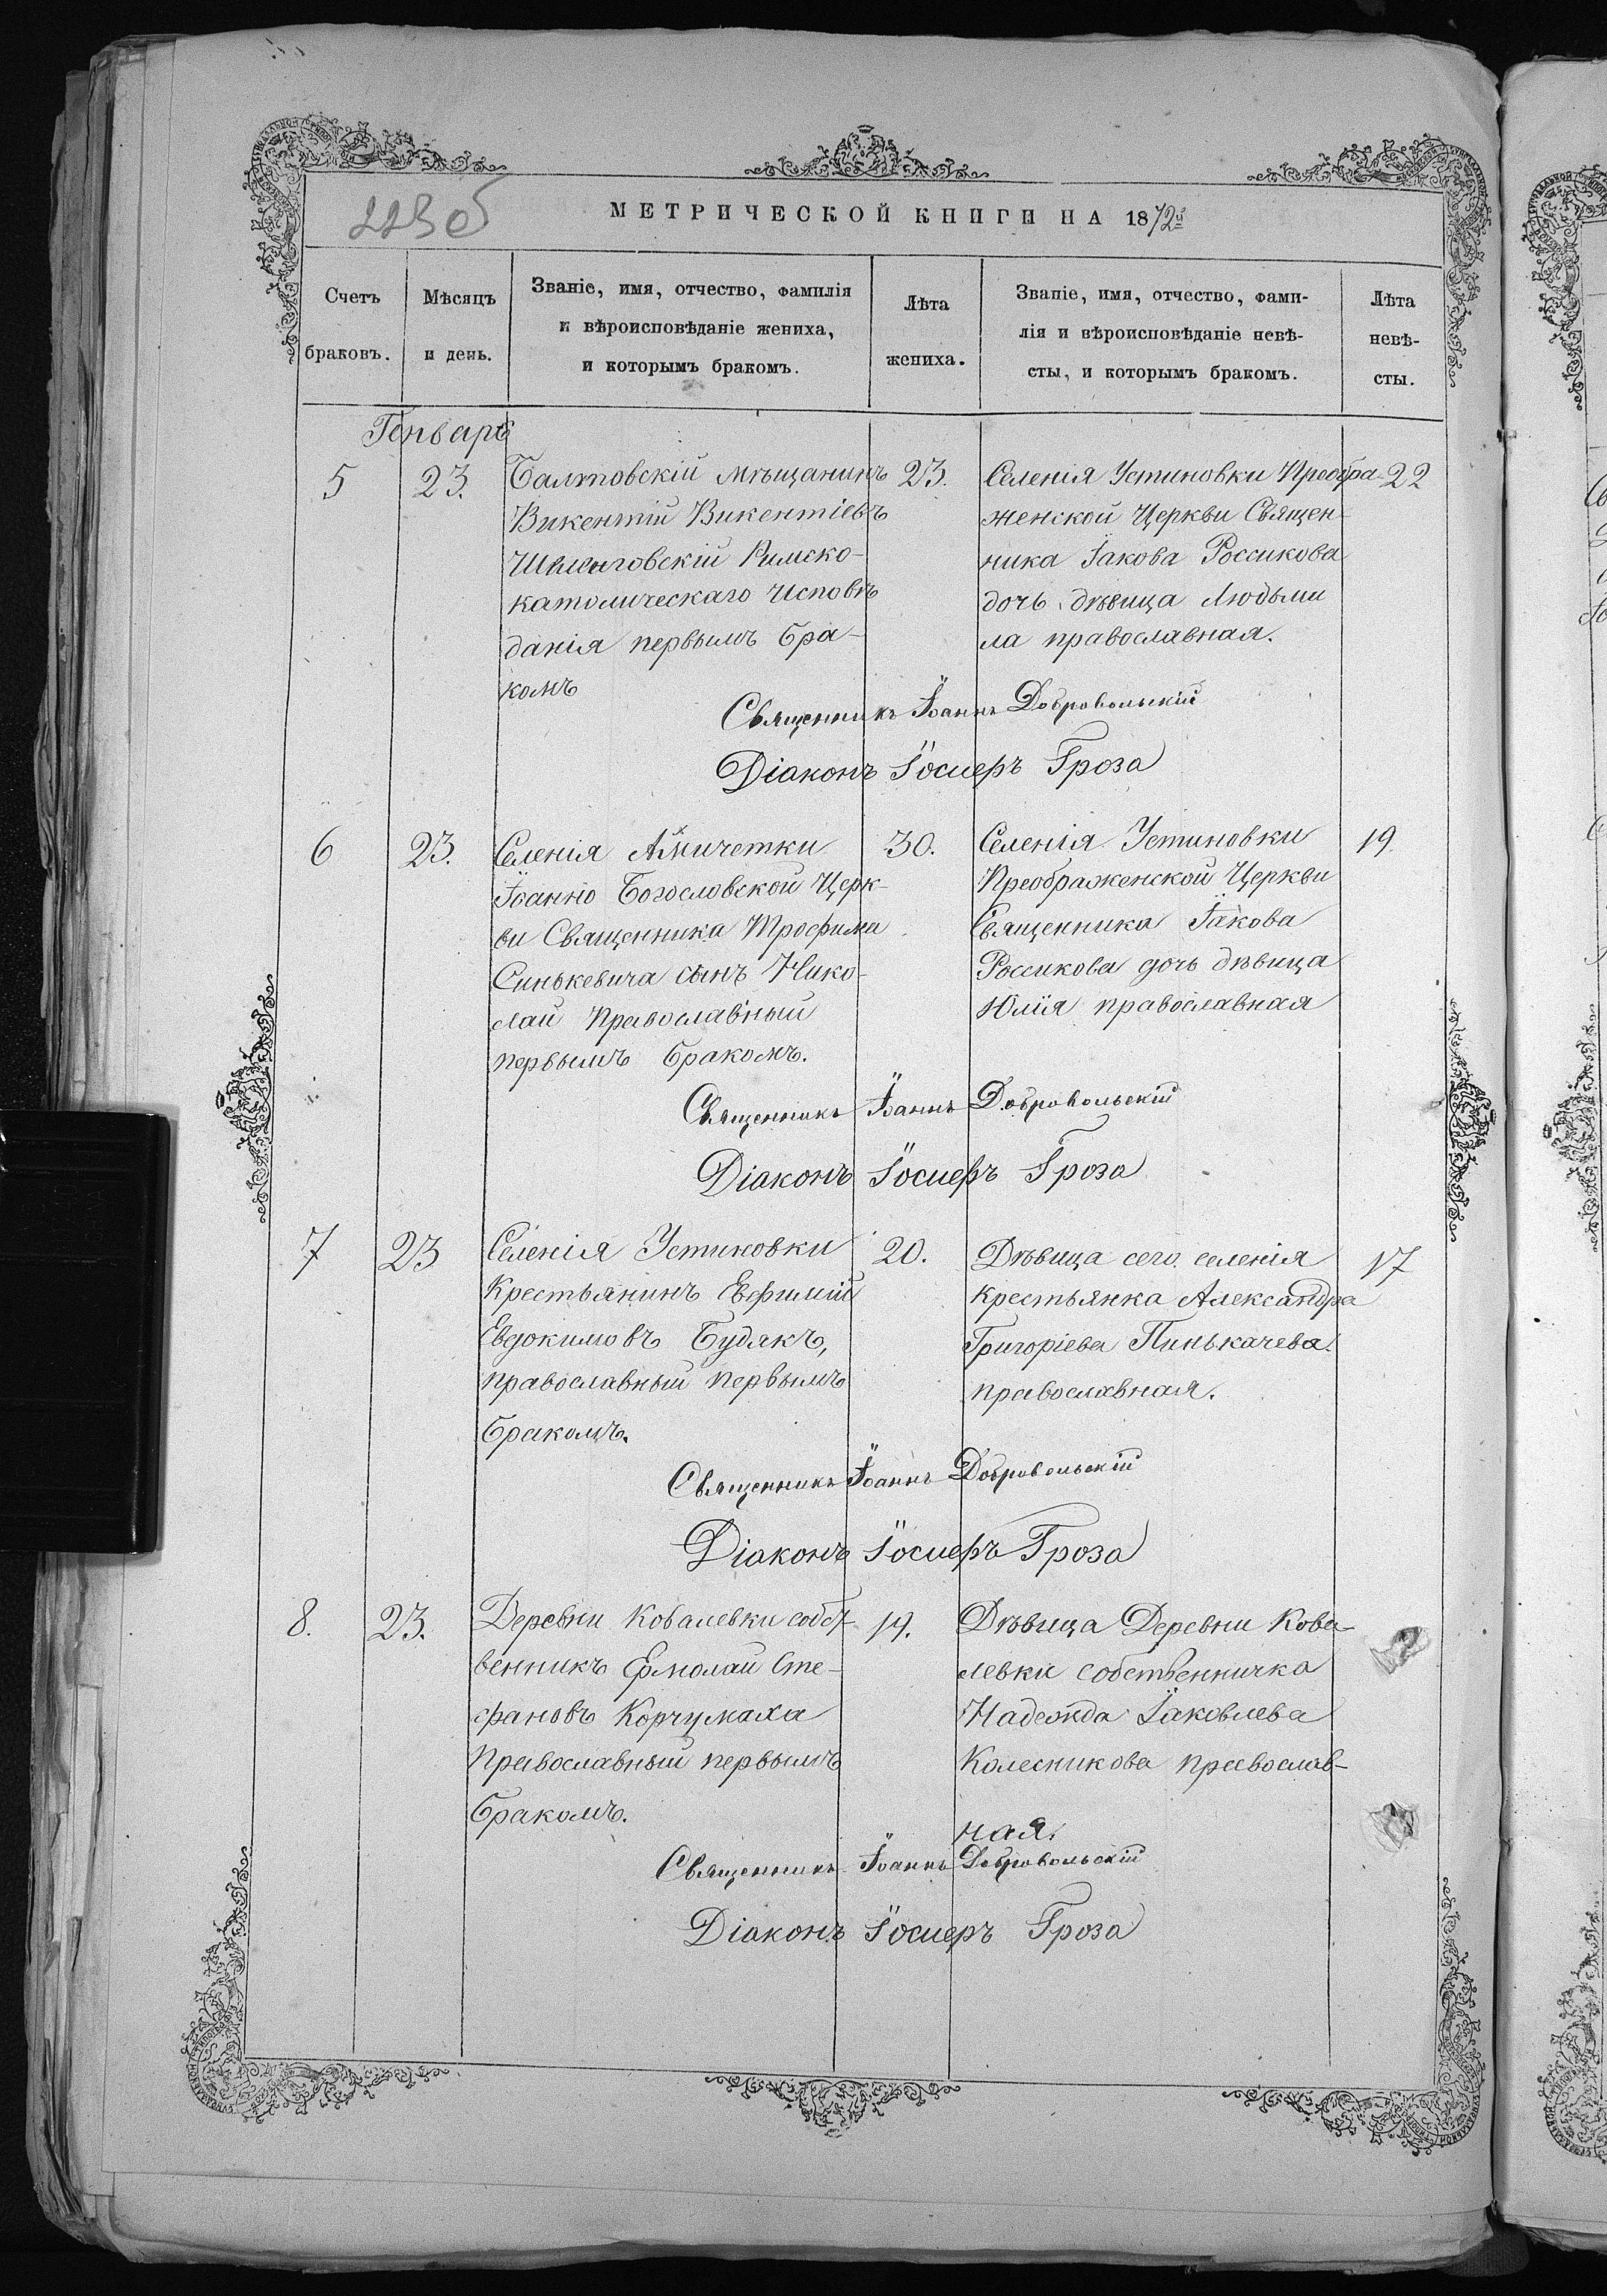 223 об
МЕТРИЧЕСКОЙ КНИГИ НА 1872й
Счетъ
браковъ.
Мѣсяцъ
и день.
Званіе, имя, отчество, фамилія
и вѣроисповѣданіе жениха,
и которымъ бракомъ.
Лѣта
жениха.
Званіе, имя, отчество, фами-
лія и вѣроисповѣданіе невѣ-
сты, и которымъ бракомъ.
Лѣта
невѣ-
сты.
Генварь
5
23.
Балтовскій мѣщанинъ
Викентій Викентіевъ
Римско-
католическаго исповѣ
данія первымъ бра-
комъ
23.
Селенія Устиновки Преобра-
женской Церкви Священ-
ника Іакова Россикова
дочь, дѣвица Людьми
ла православная.
22
Священникъ Іоаннъ Добровольскій
Діаконъ Іосифъ Гроза
6
23.
Селенія Амичетки
Іоанно Богословской Церк-
ви Священника Трофима
Синькевича сынъ Нико-
лай Православный
первымъ бракомъ.
30.
Селенія Устиновки
Преображенской Церкви
Священника Іакова
Россикова дочь дѣвица
Юлія православная
19.
Священникъ Іоаннъ Добровольскій
Діаконъ Іосифъ Гроза
7
23
Селенія Устиновки
Крестьянинъ Евфимій
Евдокимовъ Будякъ,
православный первымъ
бракомъ.
20.
Дѣвица сего селенія
крестьянка Александра
Григоріева Пинькачева
православная.
17
Священникъ Іоаннъ Добровольскій
Діаконъ Іосифъ Гроза
8.
23.
Деревни Ковалевки собст-
венникъ Ермолай Сте-
фановъ Корчумаха
Православный первымъ
бракомъ.
19.
Дѣвица Деревни Кова-
левки собственничка
Надежда Іаковлева
Колесникова православ-
ная.
Священникъ Іоаннъ Добровольскій
Діаконъ Іосифъ Гроза